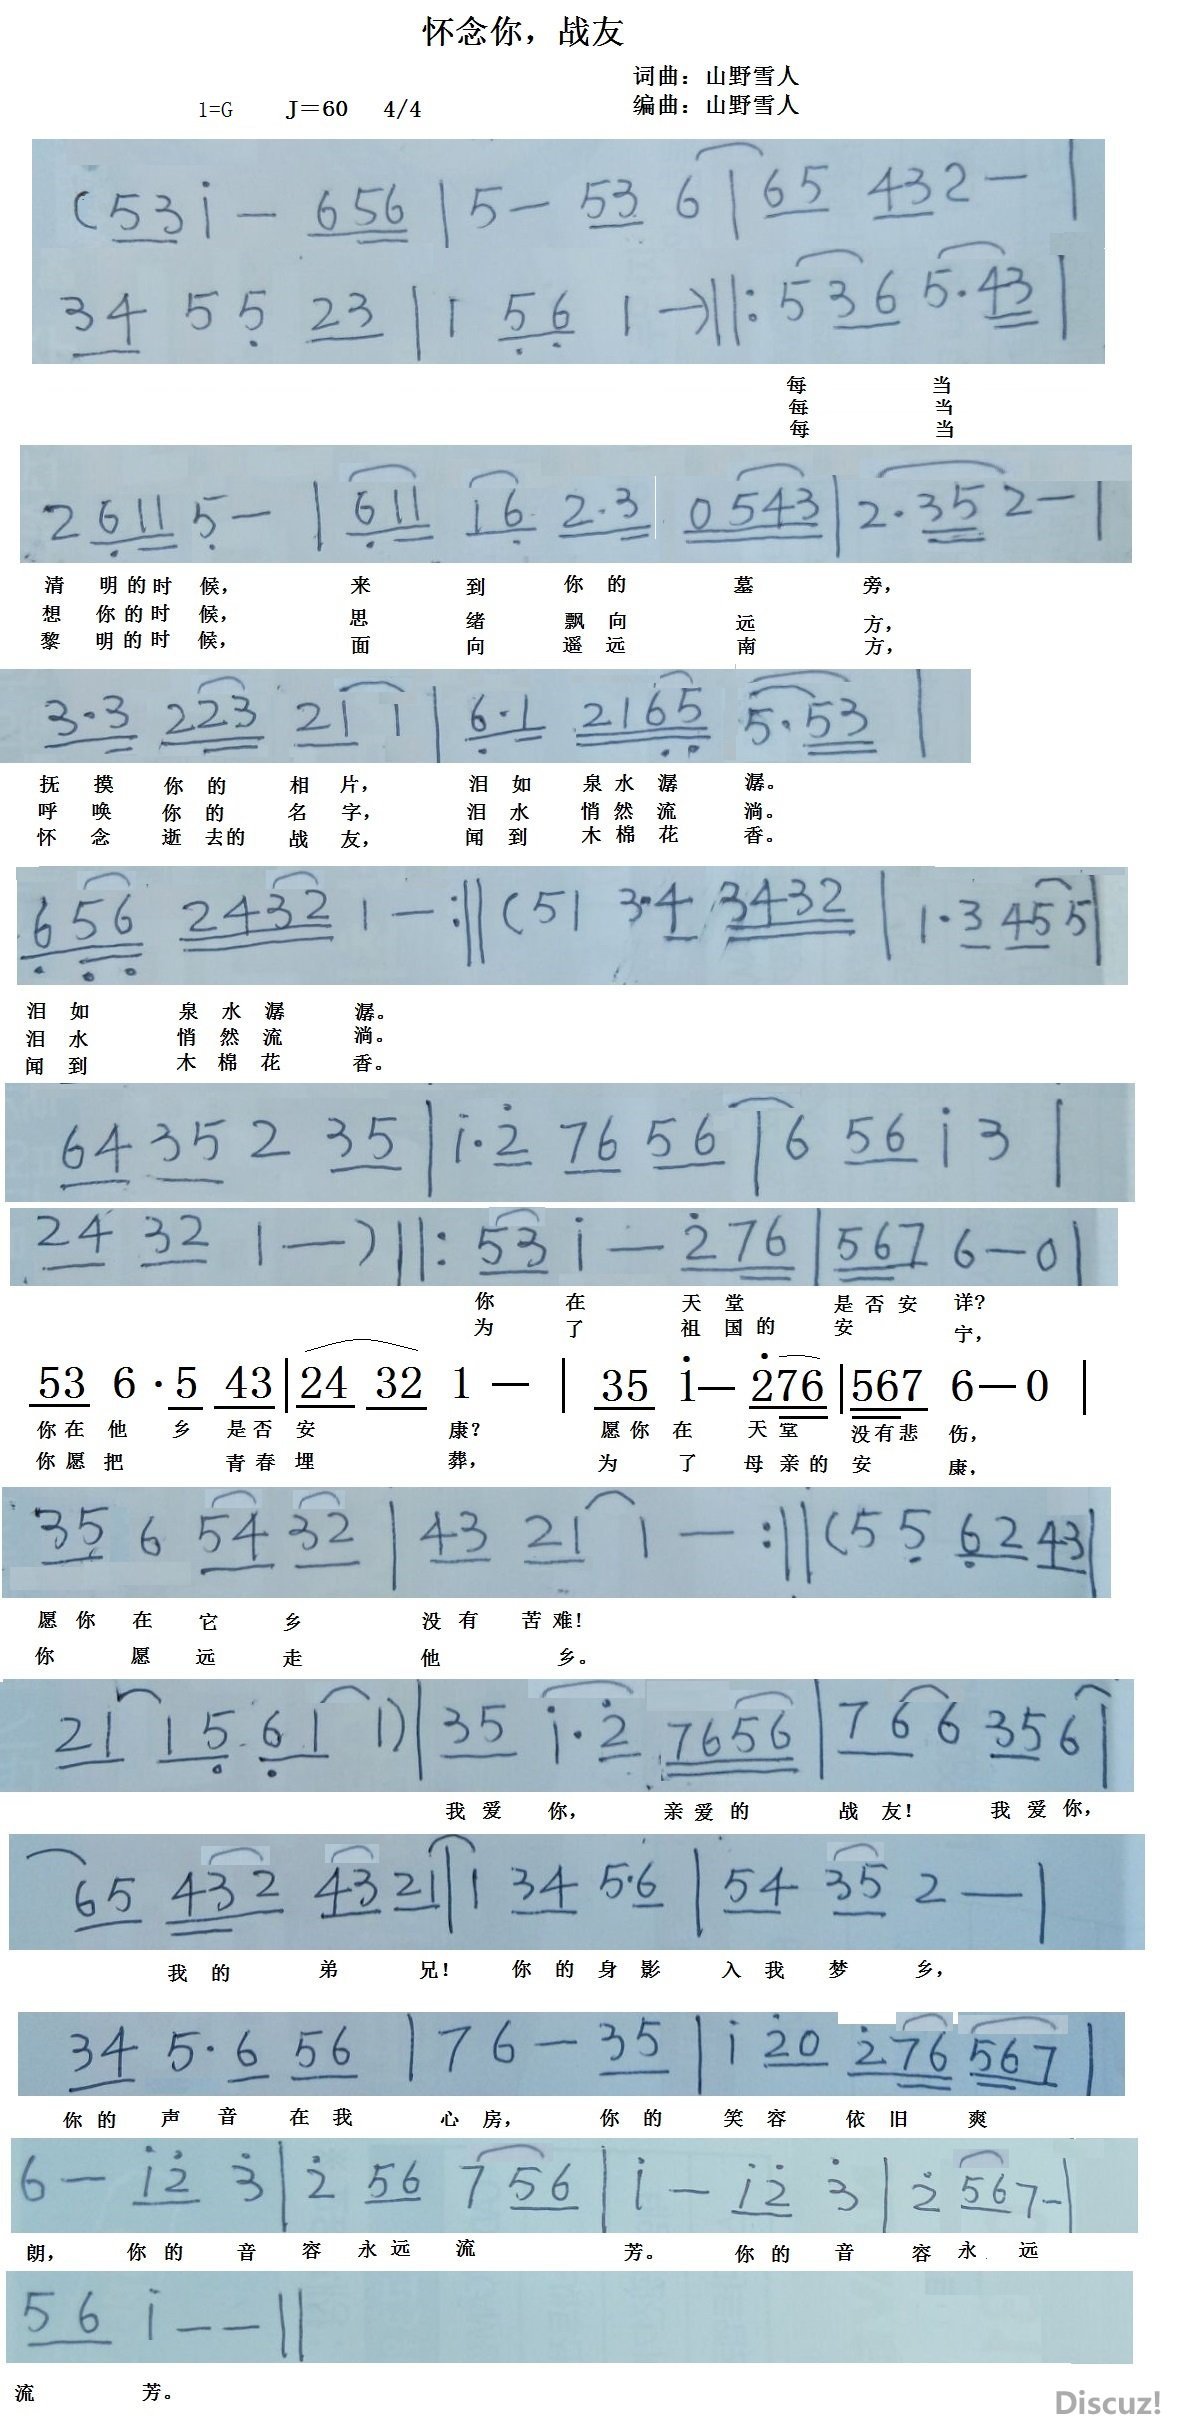 怀念你，战友
词曲：山野雪人
1=G J=60 4/4
编曲：山野雪人
(53i — 656 | 5 — 53 6 | 65 432 — |
34 5 5 23 | 1 56 1 —)||: 536 5·43 |
每 当
每 当
每 当
2 611 5 — | 611 16 2·3 0543 | 2·35 2 — |
清 明的时 候， 来 到 你 的 墓 旁，
想 你的时 候， 思 绪 飘 向 远 方，
黎 明的时 候， 面 向 遥 远 南 方，
3·3 223 21 1 | 6·1 2165 5·53 |
抚 摸 你 的 相 片， 泪 如 泉 水 潺 潺。
呼 唤 你 的 名 字， 泪 水 悄 然 流 淌。
怀 念 逝 去的 战 友， 闻 到 木 棉 花 香。
656 2432 1 — :|| (51 3·4 3432 | 1·3 45 5 |
泪 如 泉 水 潺 潺。
泪 水 悄 然 流 淌。
闻 到 木 棉 花 香。
64 35 2 35 | i·2 76 56 | 6 56 i 3 |
24 32 1 — )||: 53 i — 276 | 567 6 — 0 |
你 在 天 堂 是 否 安 详?
为 了 祖 国 的 安 宁，
53 6 · 5 43 | 24 32 1 — | 35 i — 276 | 567 6 — 0 |
你 在 他 乡 是 否 安 康? 愿 你 在 天 堂 没 有 悲 伤，
你 愿 把 青 春 埋 葬， 为 了 母 亲 的 安 康，
35 6 54 32 | 43 21 1 — :|| (5 5 62 43 |
愿 你 在 它 乡 没 有 苦 难!
你 愿 远 走 他 乡。
21 15 61 1) | 35 i·2 7656 | 76 6 35 6 |
我 爱 你， 亲 爱 的 战 友! 我 爱 你，
65 432 43 21 | 1 34 5·6 | 54 35 2 — |
我 的 弟 兄! 你 的 身 影 入 我 梦 乡，
34 5·6 56 | 7 6 — 35 | i 20 276 567 |
你 的 声 音 在 我 心 房， 你 的 笑 容 依 旧 爽
6 — i2 3 | 2 56 7 56 | i — i2 3 | 2 56 7 — |
朗， 你 的 音 容 永 远 流 芳。 你 的 音 容 永 远
56 i — — ||
流 芳。
Discuz!